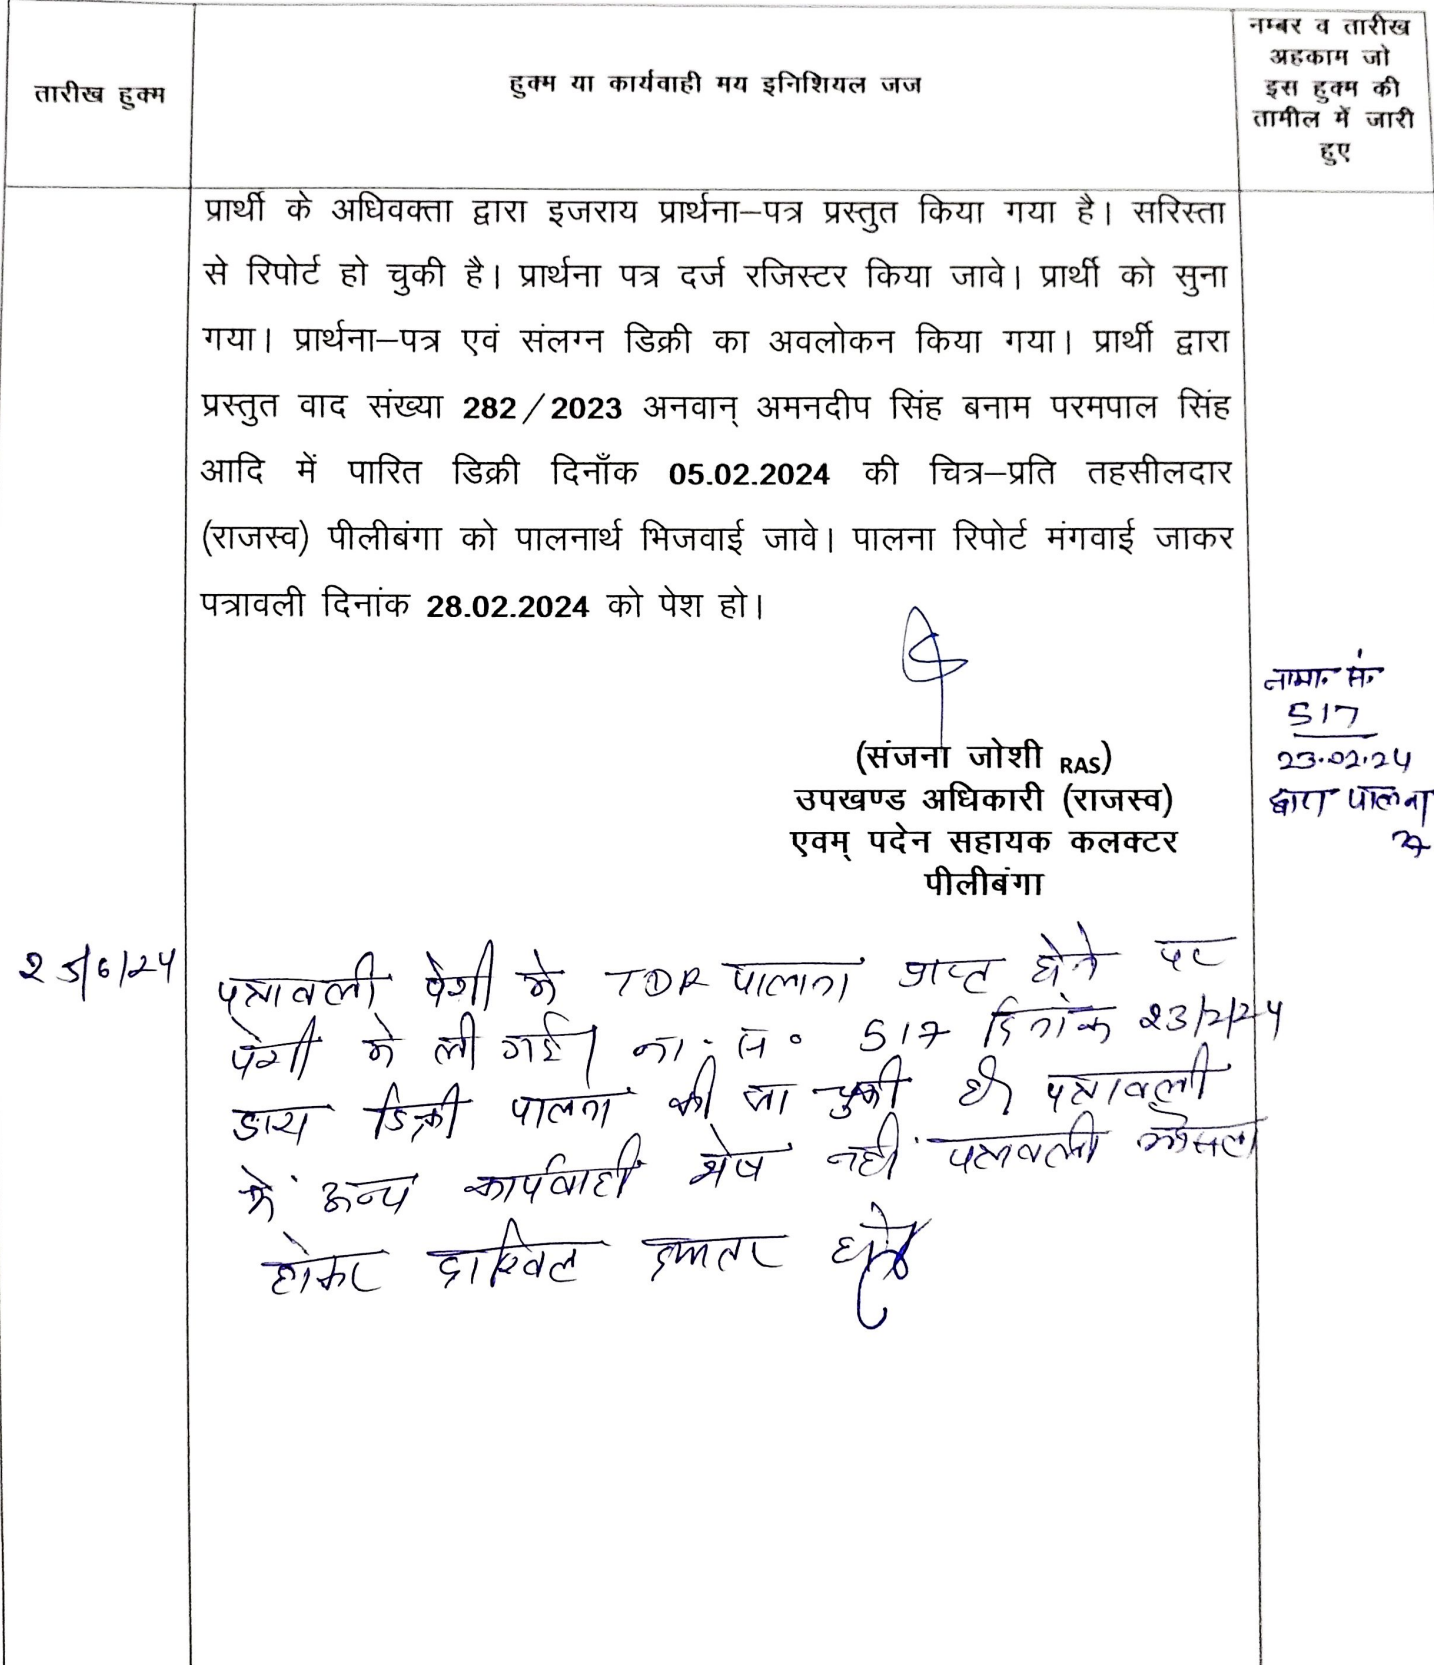 तारीख हुक्म
हुक्म या कार्यवाही मय इनिशियल जज
नम्बर व तारीख
अहकाम जो
इस हुक्म की
तामील में जारी
हुए
प्रार्थी के अधिवक्ता द्वारा इजराय प्रार्थना–पत्र प्रस्तुत किया गया है। सरिस्ता
से रिपोर्ट हो चुकी है। प्रार्थना पत्र दर्ज रजिस्टर किया जावे। प्रार्थी को सुना
गया। प्रार्थना–पत्र एवं संलग्न डिक्री का अवलोकन किया गया। प्रार्थी द्वारा
प्रस्तुत वाद संख्या 282/2023 अनवान् अमनदीप सिंह बनाम परमपाल सिंह
आदि में पारित डिक्री दिनाँक 05.02.2024 की चित्र–प्रति तहसीलदार
(राजस्व) पीलीबंगा को पालनार्थ भिजवाई जावे। पालना रिपोर्ट मंगवाई जाकर
पत्रावली दिनांक 28.02.2024 को पेश हो।
(संजना जोशी RAS)
उपखण्ड अधिकारी (राजस्व)
एवम् पदेन सहायक कलक्टर
पीलीबंगा
नामा. सं.
517
23.02.24
द्वारा पालना
25/6/24
पत्रावली पेशी मे TDR पालना प्राप्त होने पर
पेशी मे ली गई। ना. स. 517 दिनांक 23/2/24
द्वारा डिक्री पालना की जा चुकी है। पत्रावली
मे अन्य कार्यवाही शेष नही पत्रावली फैसला
होकर दाखिल दफ्तर होवे